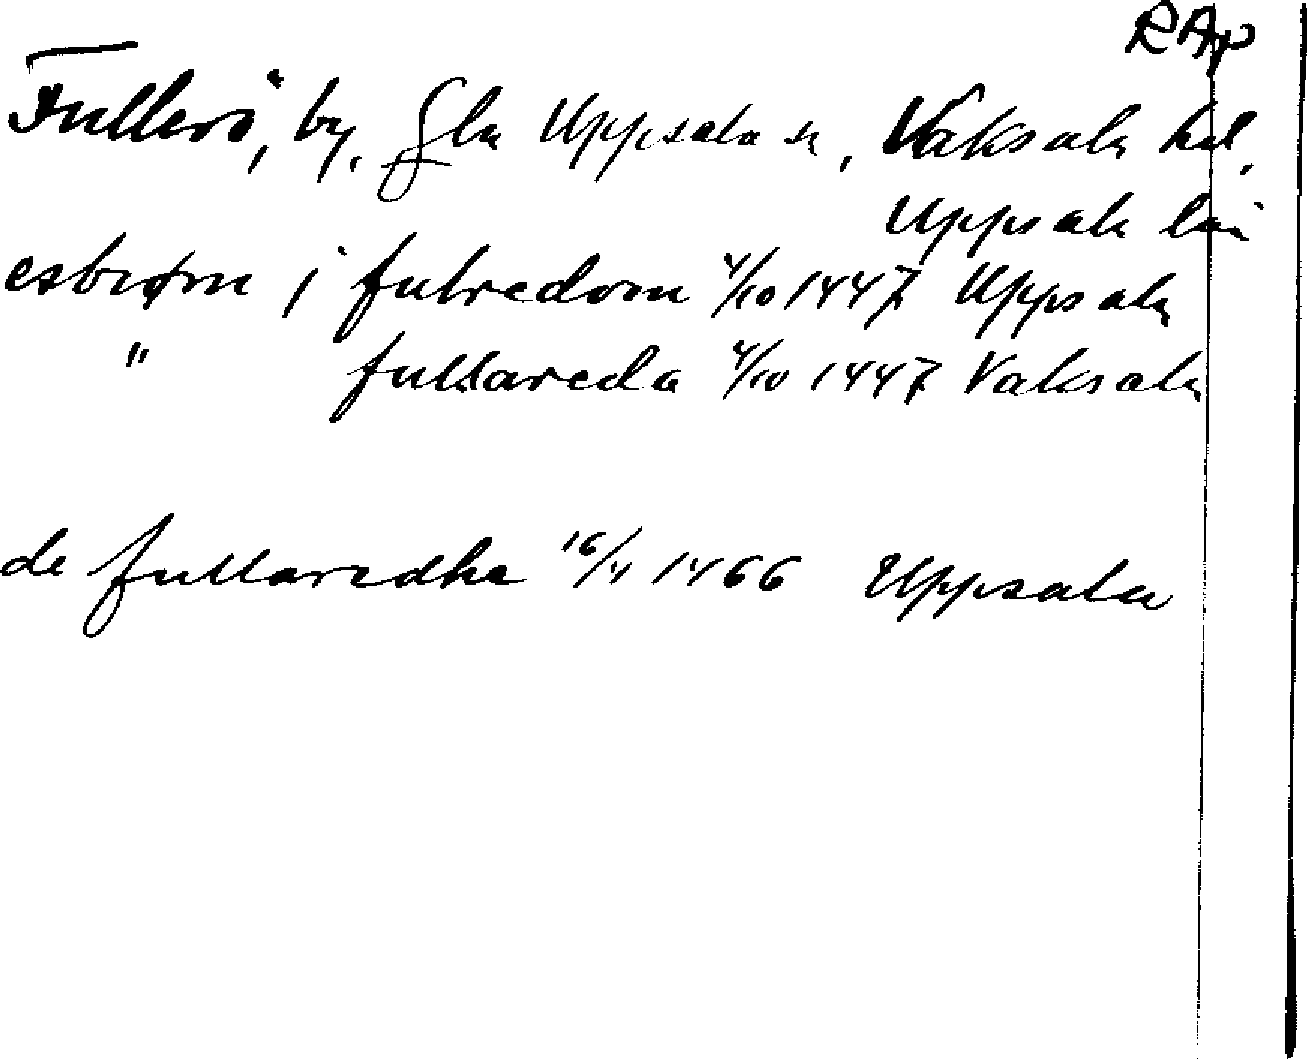 RAp
Fullerö, by, Gla Uppsala sn, Vaksala hd,
Uppsala län
esbiørne j fulredom 4/10 1447 Uppsala
" fullareda 4/10 1447 Vaksala
de fullaredhe 16/4 1466 Uppsala